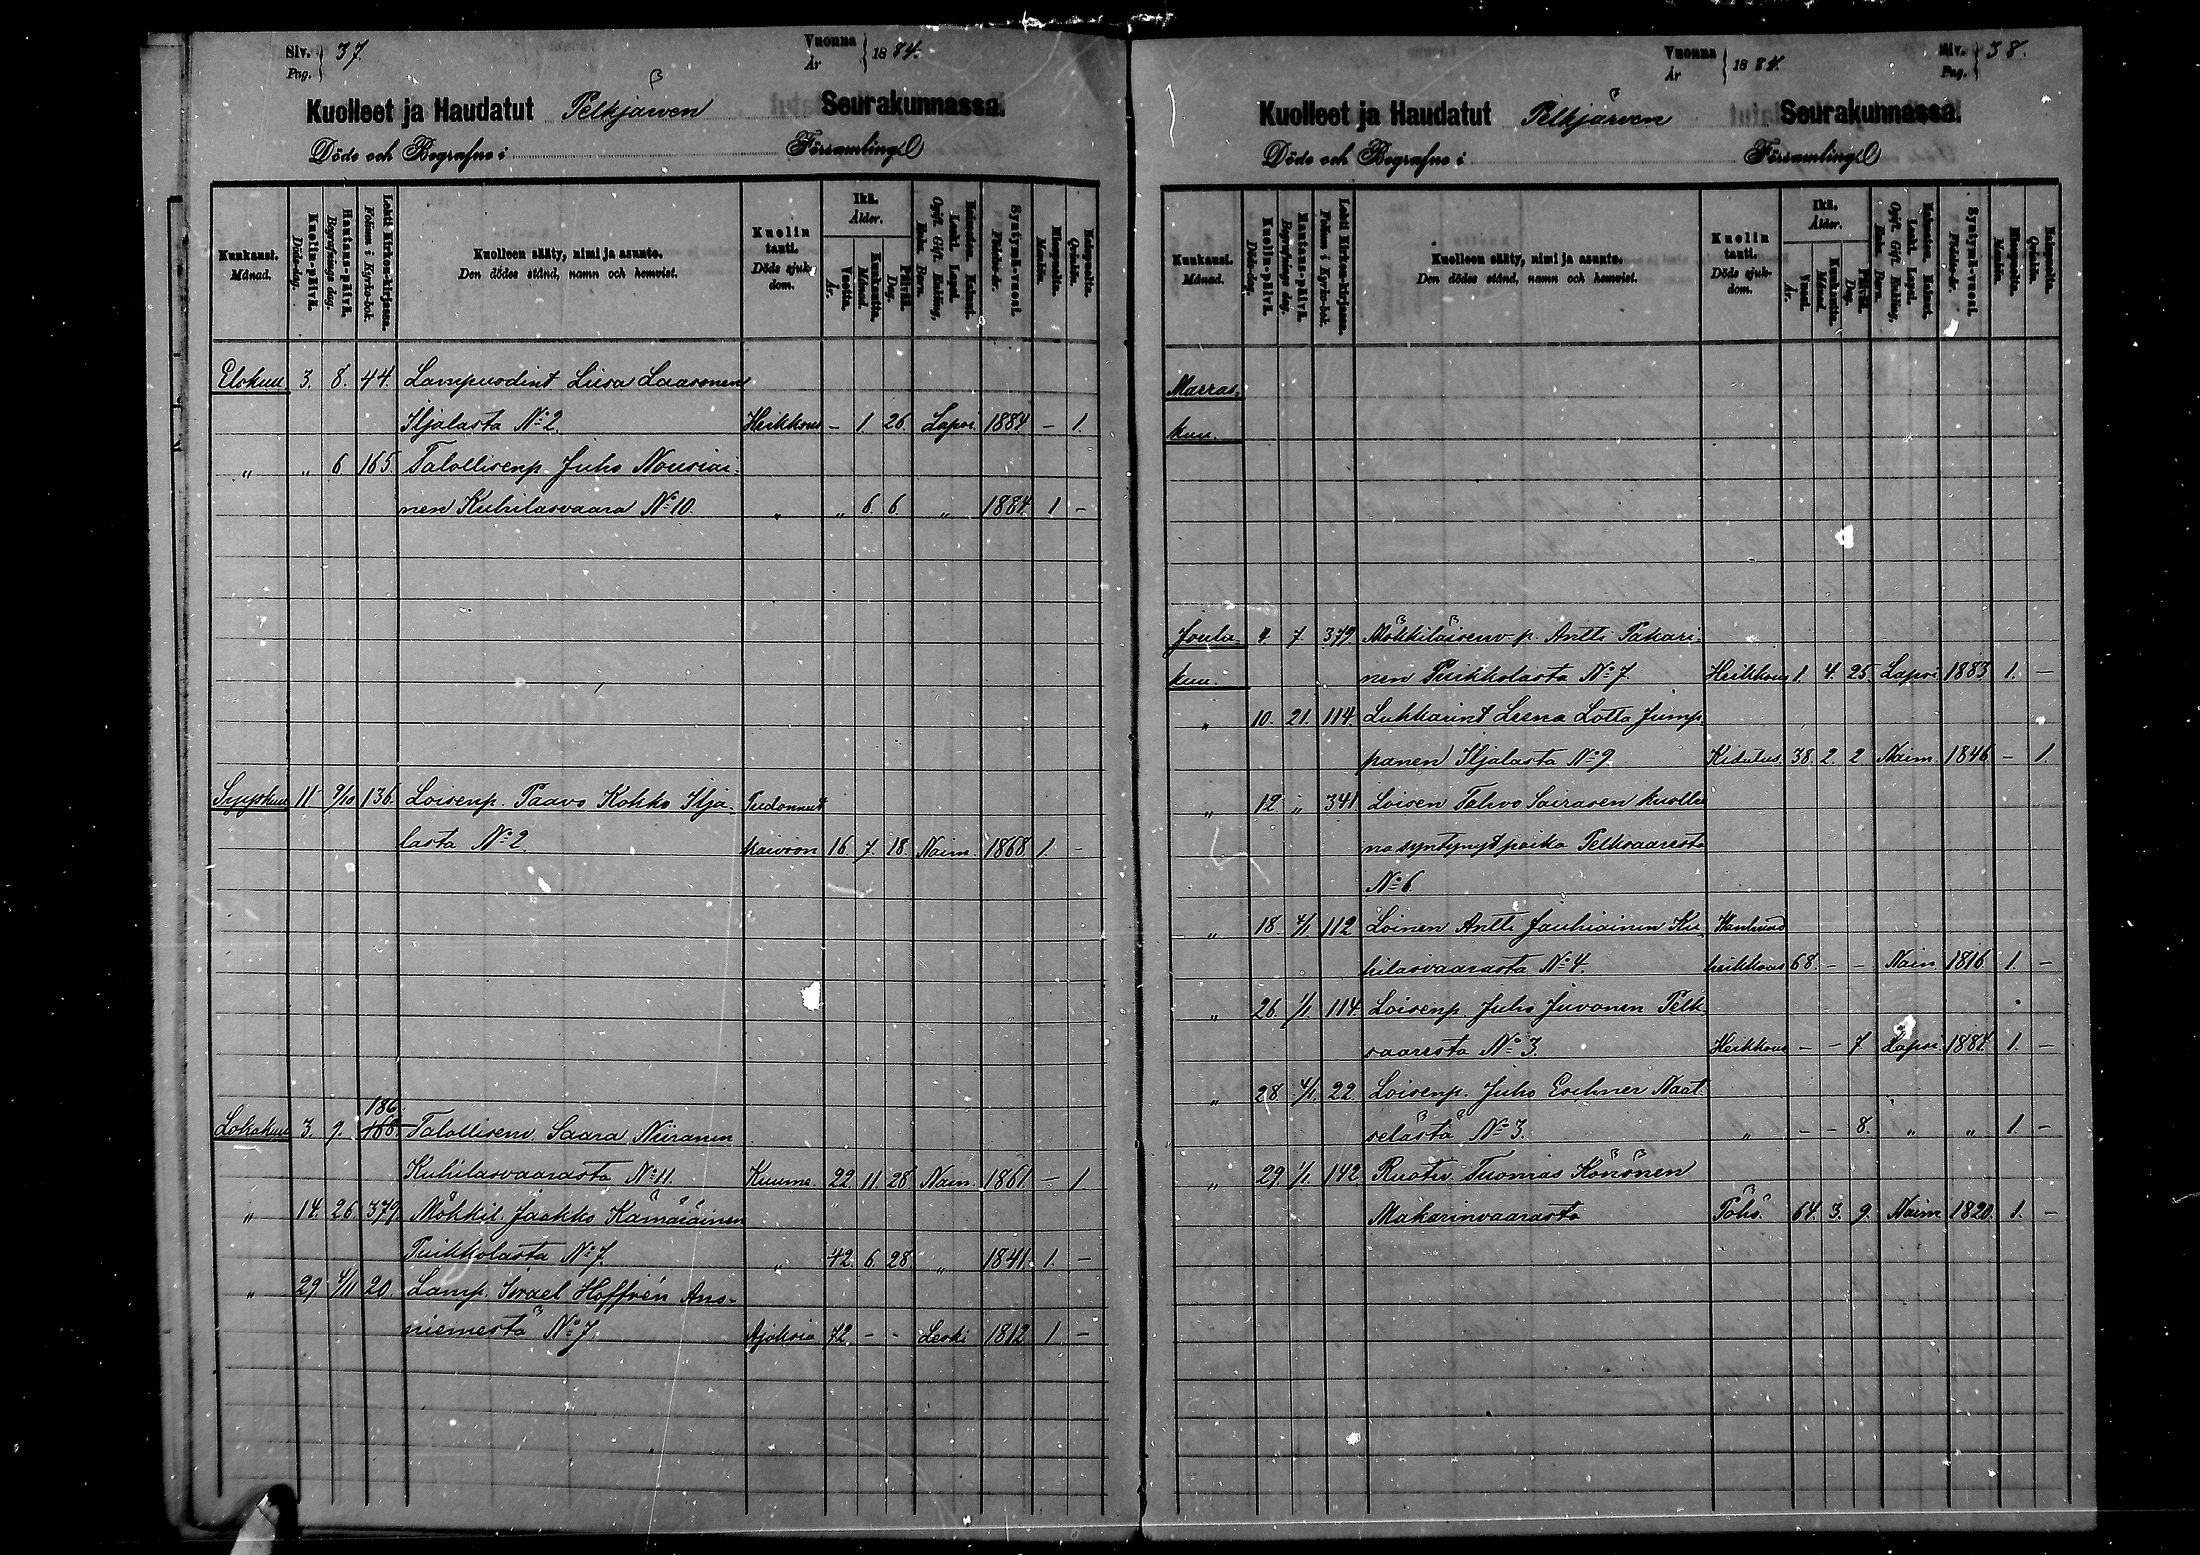 Siv. Pag. 37.
Vuonna År 1884.
Kuolleet ja Haudatut Pelkjärven Seurakunnassa.
Döde och Begrafne i Församling
Kuukausi. Månad.
Kuolin-päivä. Döds-dag.
Hautaus-päivä. Begrafnings dag.
Lehti Kirkon-kirjassa. Folium i Kyrko-bok.
Kuolleen sääty, nimi ja asunto. Den dödes stånd, namn och hemvist.
Kuolin tauti. Döds sjukdom.
Ikä. Ålder.
Vuotta. År.
Kuukautta. Månad.
Päivää. Dag.
Syntymä-vuosi. Födelse-år.
Miespuolta. Mankön.
Naispuolta. Qvinkön.
Elokuu 3. 8. 44. Lampuodint Liisa Laasonen
Iljalasta No 2. Heikkous - 1. 26. Lapsi. 1884 - 1.
„ „ 6 165. Talollisenp. Juho Nousiai-
nen Kuhilasvaara No 10. „ „ 6. 6. „ 1884. 1 -
Syyskuu 11 9/10 136. Loisenp. Paavo Kokko Ilja- Pudonnut
lasta No 2. kaivoon 16 7. 18. Naim. 1868. 1. -
186.
Lokakuu 3. 9. 168. Talollisenv. Saara Niiranen
Kuhilasvaarasta No 11. Kuume. 22 11 28 Naim. 1861 - 1
„ 14. 26. 379. Mökkil. Jaakko Kämäräinen
Puikkolasta No 7. „ 42. 6. 28. „ 1841. 1. -
„ 29 4/11 20. Lamp. Israel Hoffrén Ans-
niemestä No 7. Ajoksia 72. - - Leski 1812. 1 -
Siv. Pag. 38.
Vuonna År 1884.
Kuolleet ja Haudatut Pelkjärven Seurakunnassa.
Döde och Begrafne i Församling
Kuukausi. Månad.
Kuolin-päivä. Döds-dag.
Hautaus-päivä. Begrafnings dag.
Lehti Kirkon-kirjassa. Folium i Kyrko-bok.
Kuolleen sääty, nimi ja asunto. Den dödes stånd, namn och hemvist.
Kuolin tauti. Döds sjukdom.
Ikä. Ålder.
Vuosi. År.
Kuukautta. Månad.
Päivää. Dag.
Syntymä-vuosi. Födelse-år.
Miespuolta. Mankön.
Naispuolta. Qvinkön.
Marras-
kuu.
Joulu- 4 7. 379 Mökkiläisenv-p. Antti Pakari-
kuu. nen Puikkolasta No 7. Heikkous 1. 4. 25. Lapsi 1883 1. -
„ 10. 21. 114. Lukkarint Leena Lotta Jump-
panen Iljalasta No 9. Kidutus 38. 2. 2 Naim. 1846. - 1.
„ 12 „ 341. Loisen Tahvo Sairasen kuollu-
na syntynyt poika Pelksaaresta
No 6.
„ 18. 4/1 112 Loinen Antti Jauhiainen Ku-
hilasvaarasta No 4. heikkous 68 - - Naim 1816 1. -
„ 26. 1/1 114. Loisenp. Juho Juvonen Pelk-
saaresta No 3. Heikkous - - 7 Lapsi 1884. 1. -
„ 28. 4/1. 22. Loisenp. Juho Naat-
selästä No 3. „ - - 8. „ „ 1. -
„ 29. 1/1 142 Ruotu Tuomas Könönen
Makarinvaarasta Pöhö. 64. 3. 9. Naim 1820. 1. -